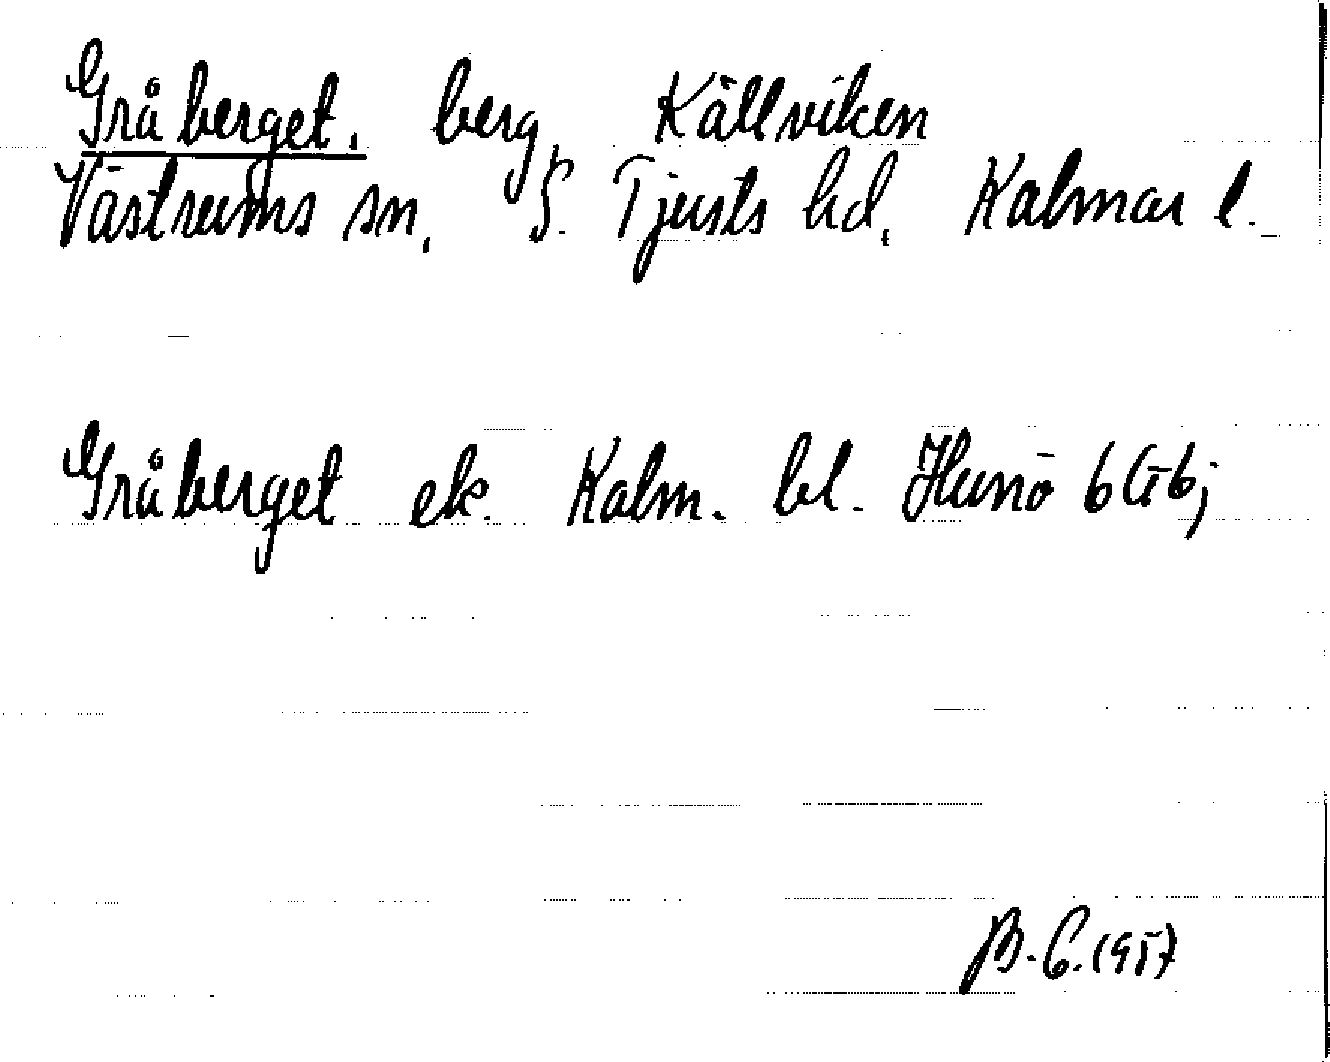 Gråberget, berg, Källviken
Västrums sn, S. Tjusts hd, Kalmar l.
Gråberget ek. Kalm. bl. Hunö 6G6j
B.C. 1957